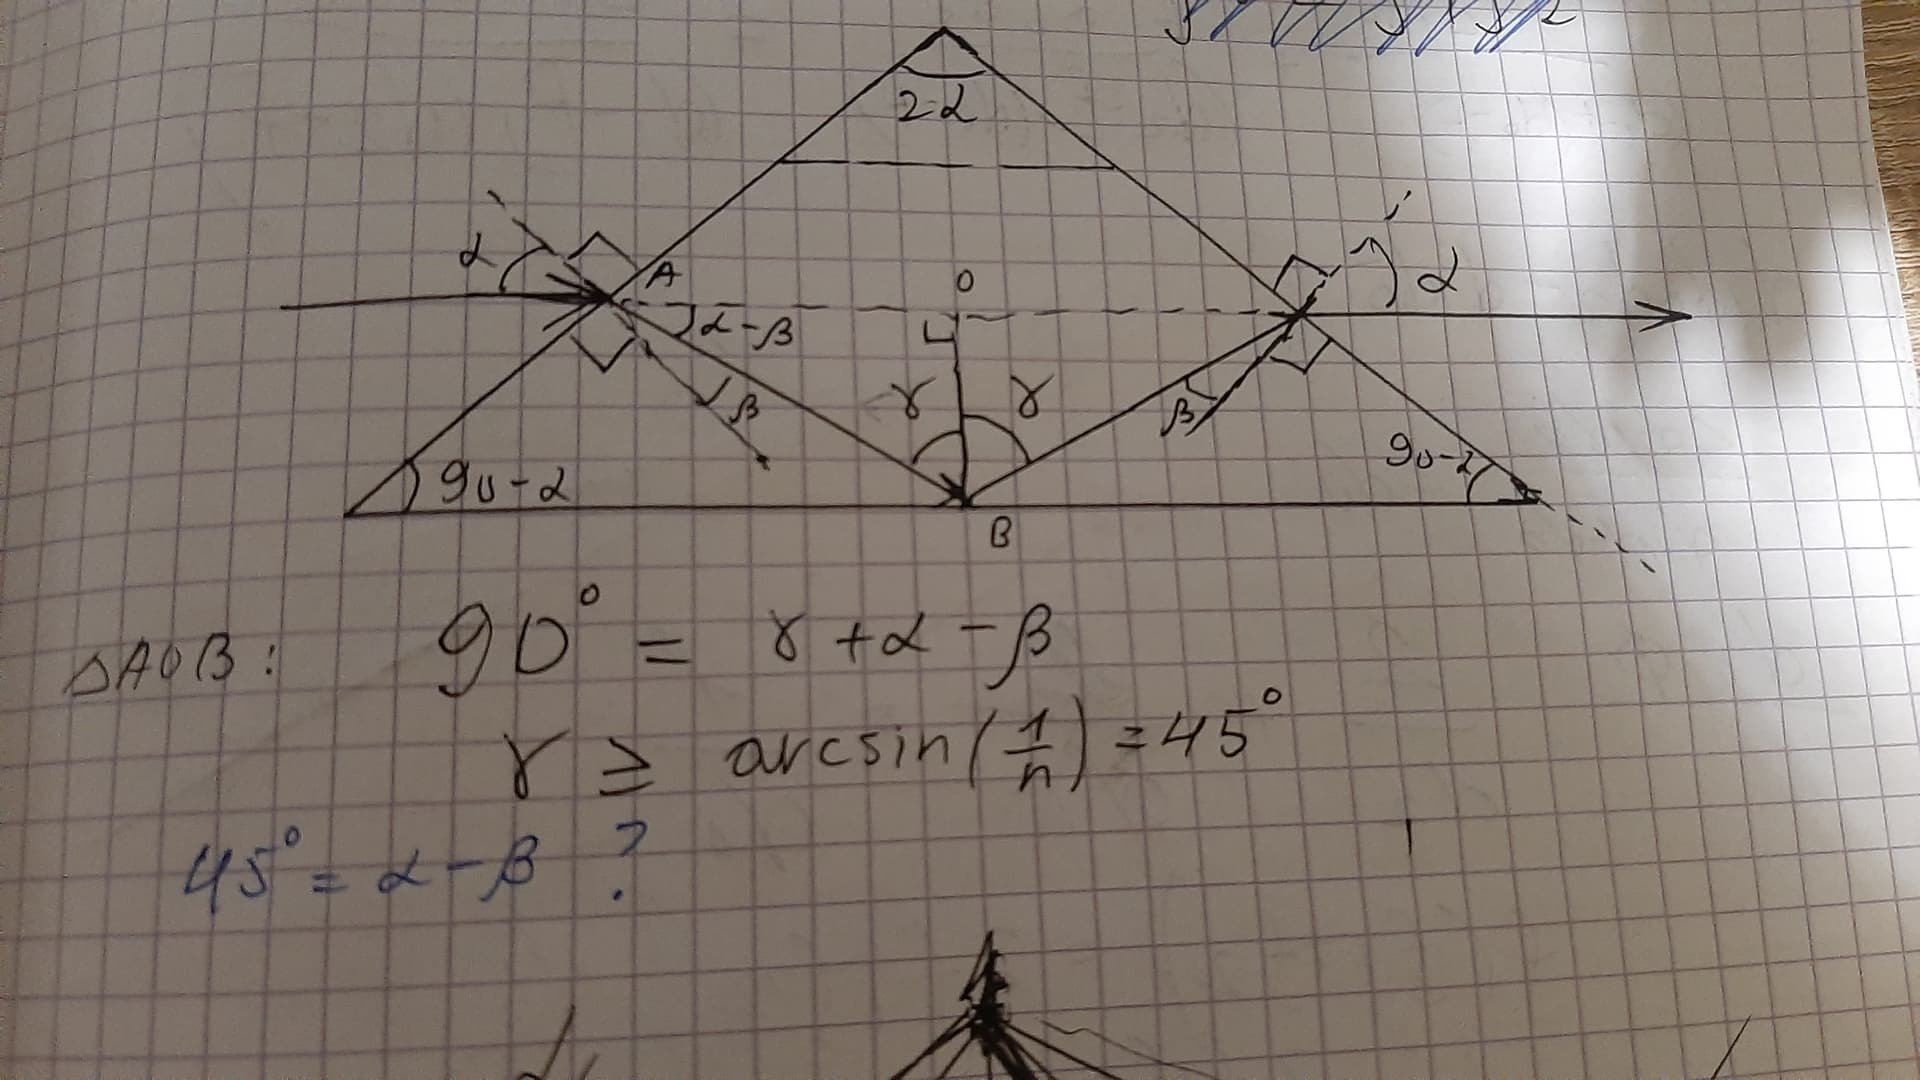 2α
α
A
O
α
α-β
β
γ
γ
β
90-α
90-α
B
ΔAOB: 90° = γ + α - β
γ ≥ arcsin(1/n) = 45°
45° = α - β ?